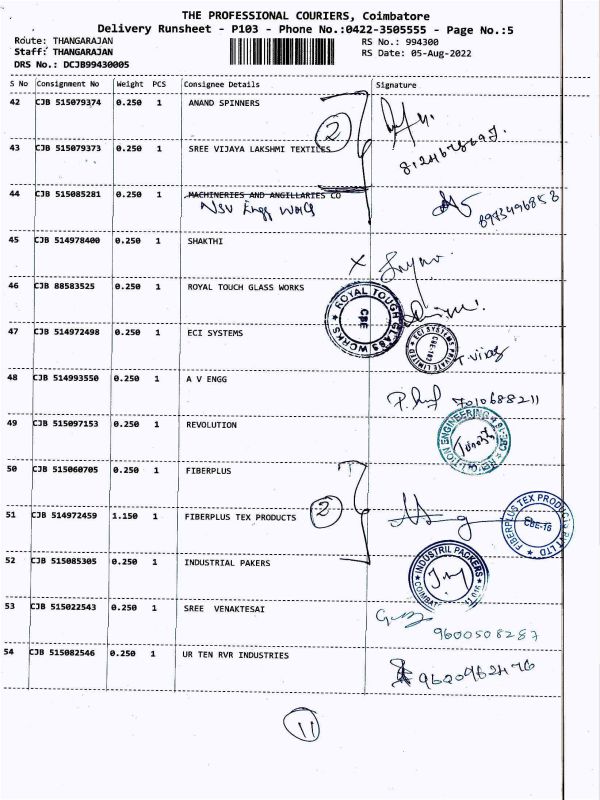 THE PROFESSIONAL COURIERS, Coimbatore
Delivery Runsheet - P103 - Phone No.:0422-3505555 - Page No.:5
Route: THANGARAJAN RS No.: 994300
Staff: THANGARAJAN RS Date: 05-Aug-2022
DRS No.: DCJB99430005
S No Consignment No Weight PCS Consignee Details Signature
42 CJB 515079374 0.250 1 ANAND SPINNERS
2
43 CJB 515079373 0.250 1 SREE VIJAYA LAKSHMI TEXTILES
44 CJB 515085281 0.250 1 MACHINERIES AND ANGILLARIES CO
NSV Engg Works 8973496858
45 CJB 514978400 0.250 1 SHAKTHI
46 CJB 88583525 0.250 1 ROYAL TOUCH GLASS WORKS
ROYAL TOUGH GLASS WORKS
CBE
47 CJB 514972498 0.250 1 ECI SYSTEMS
ECI SYSTEMS PRIVATE LIMITED
48 CJB 514993550 0.250 1 A V ENGG
7010688211
49 CJB 515097153 0.250 1 REVOLUTION
50 CJB 515060705 0.250 1 FIBERPLUS
51 CJB 514972459 1.150 1 FIBERPLUS TEX PRODUCTS
2
FIBERPLUS TEX PRODUCTS PVT LTD
CBE-18
52 CJB 515085305 0.250 1 INDUSTRIAL PAKERS
INDUSTRIL PACKERS
53 CJB 515022543 0.250 1 SREE VENAKTESAI
9600508287
54 CJB 515082546 0.250 1 UR TEN RVR INDUSTRIES
9620962476
11